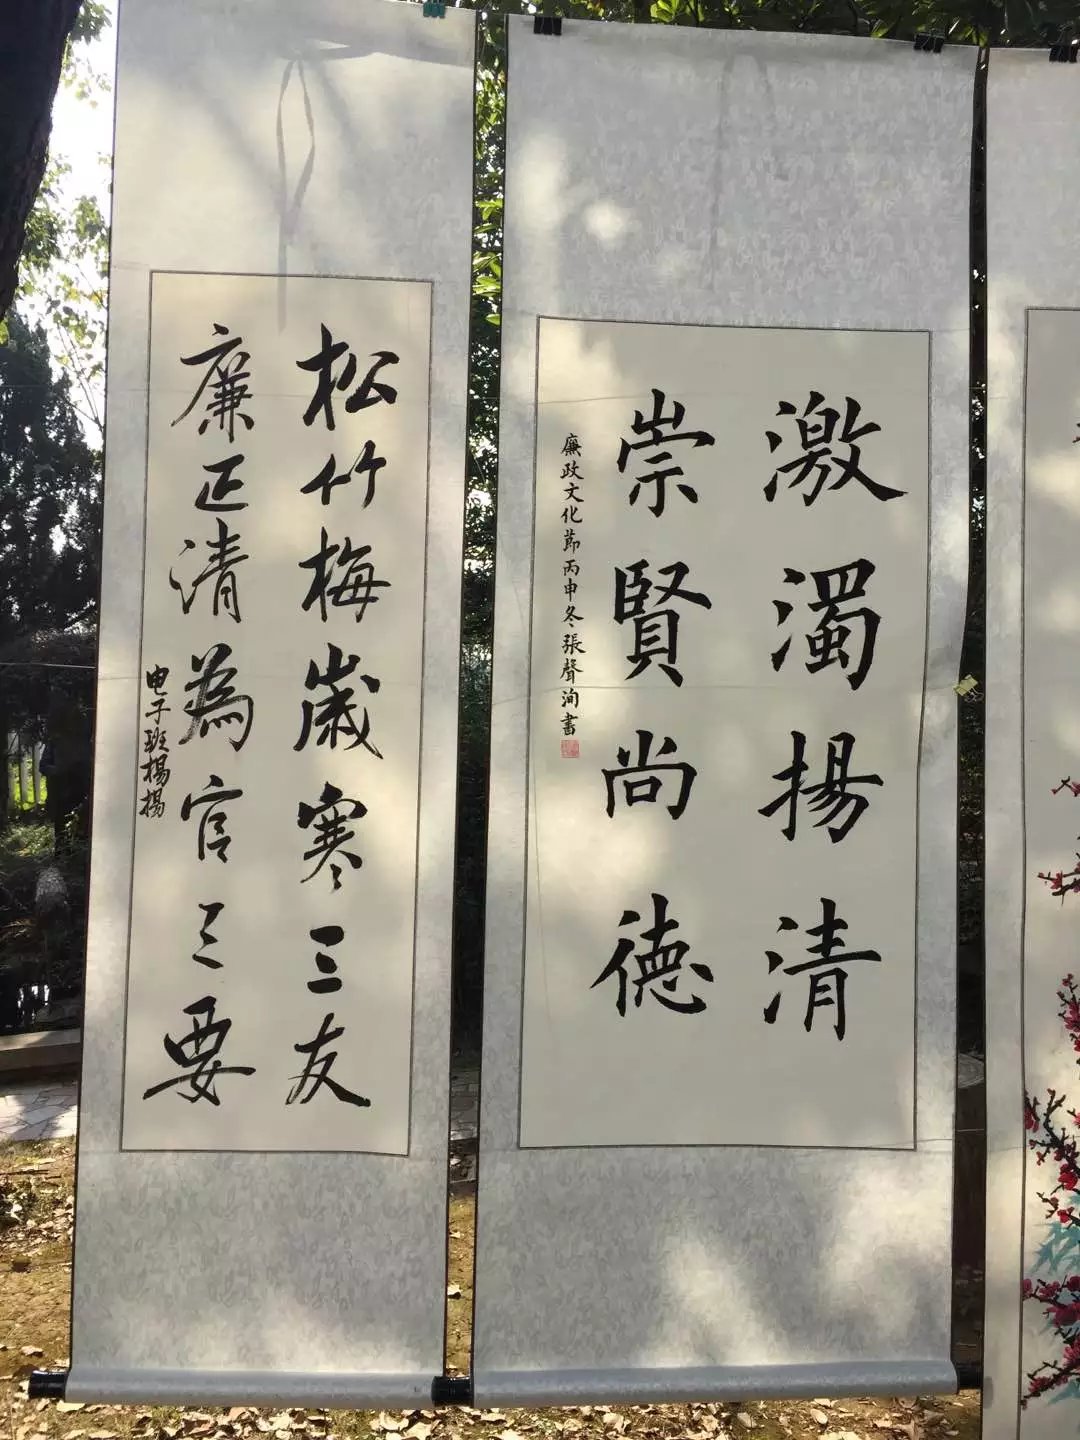 激濁揚清
崇賢尚德
廉政文化節丙申冬張聲洵書
松竹梅歲寒三友
廉正清為官三要
电子班楊楊